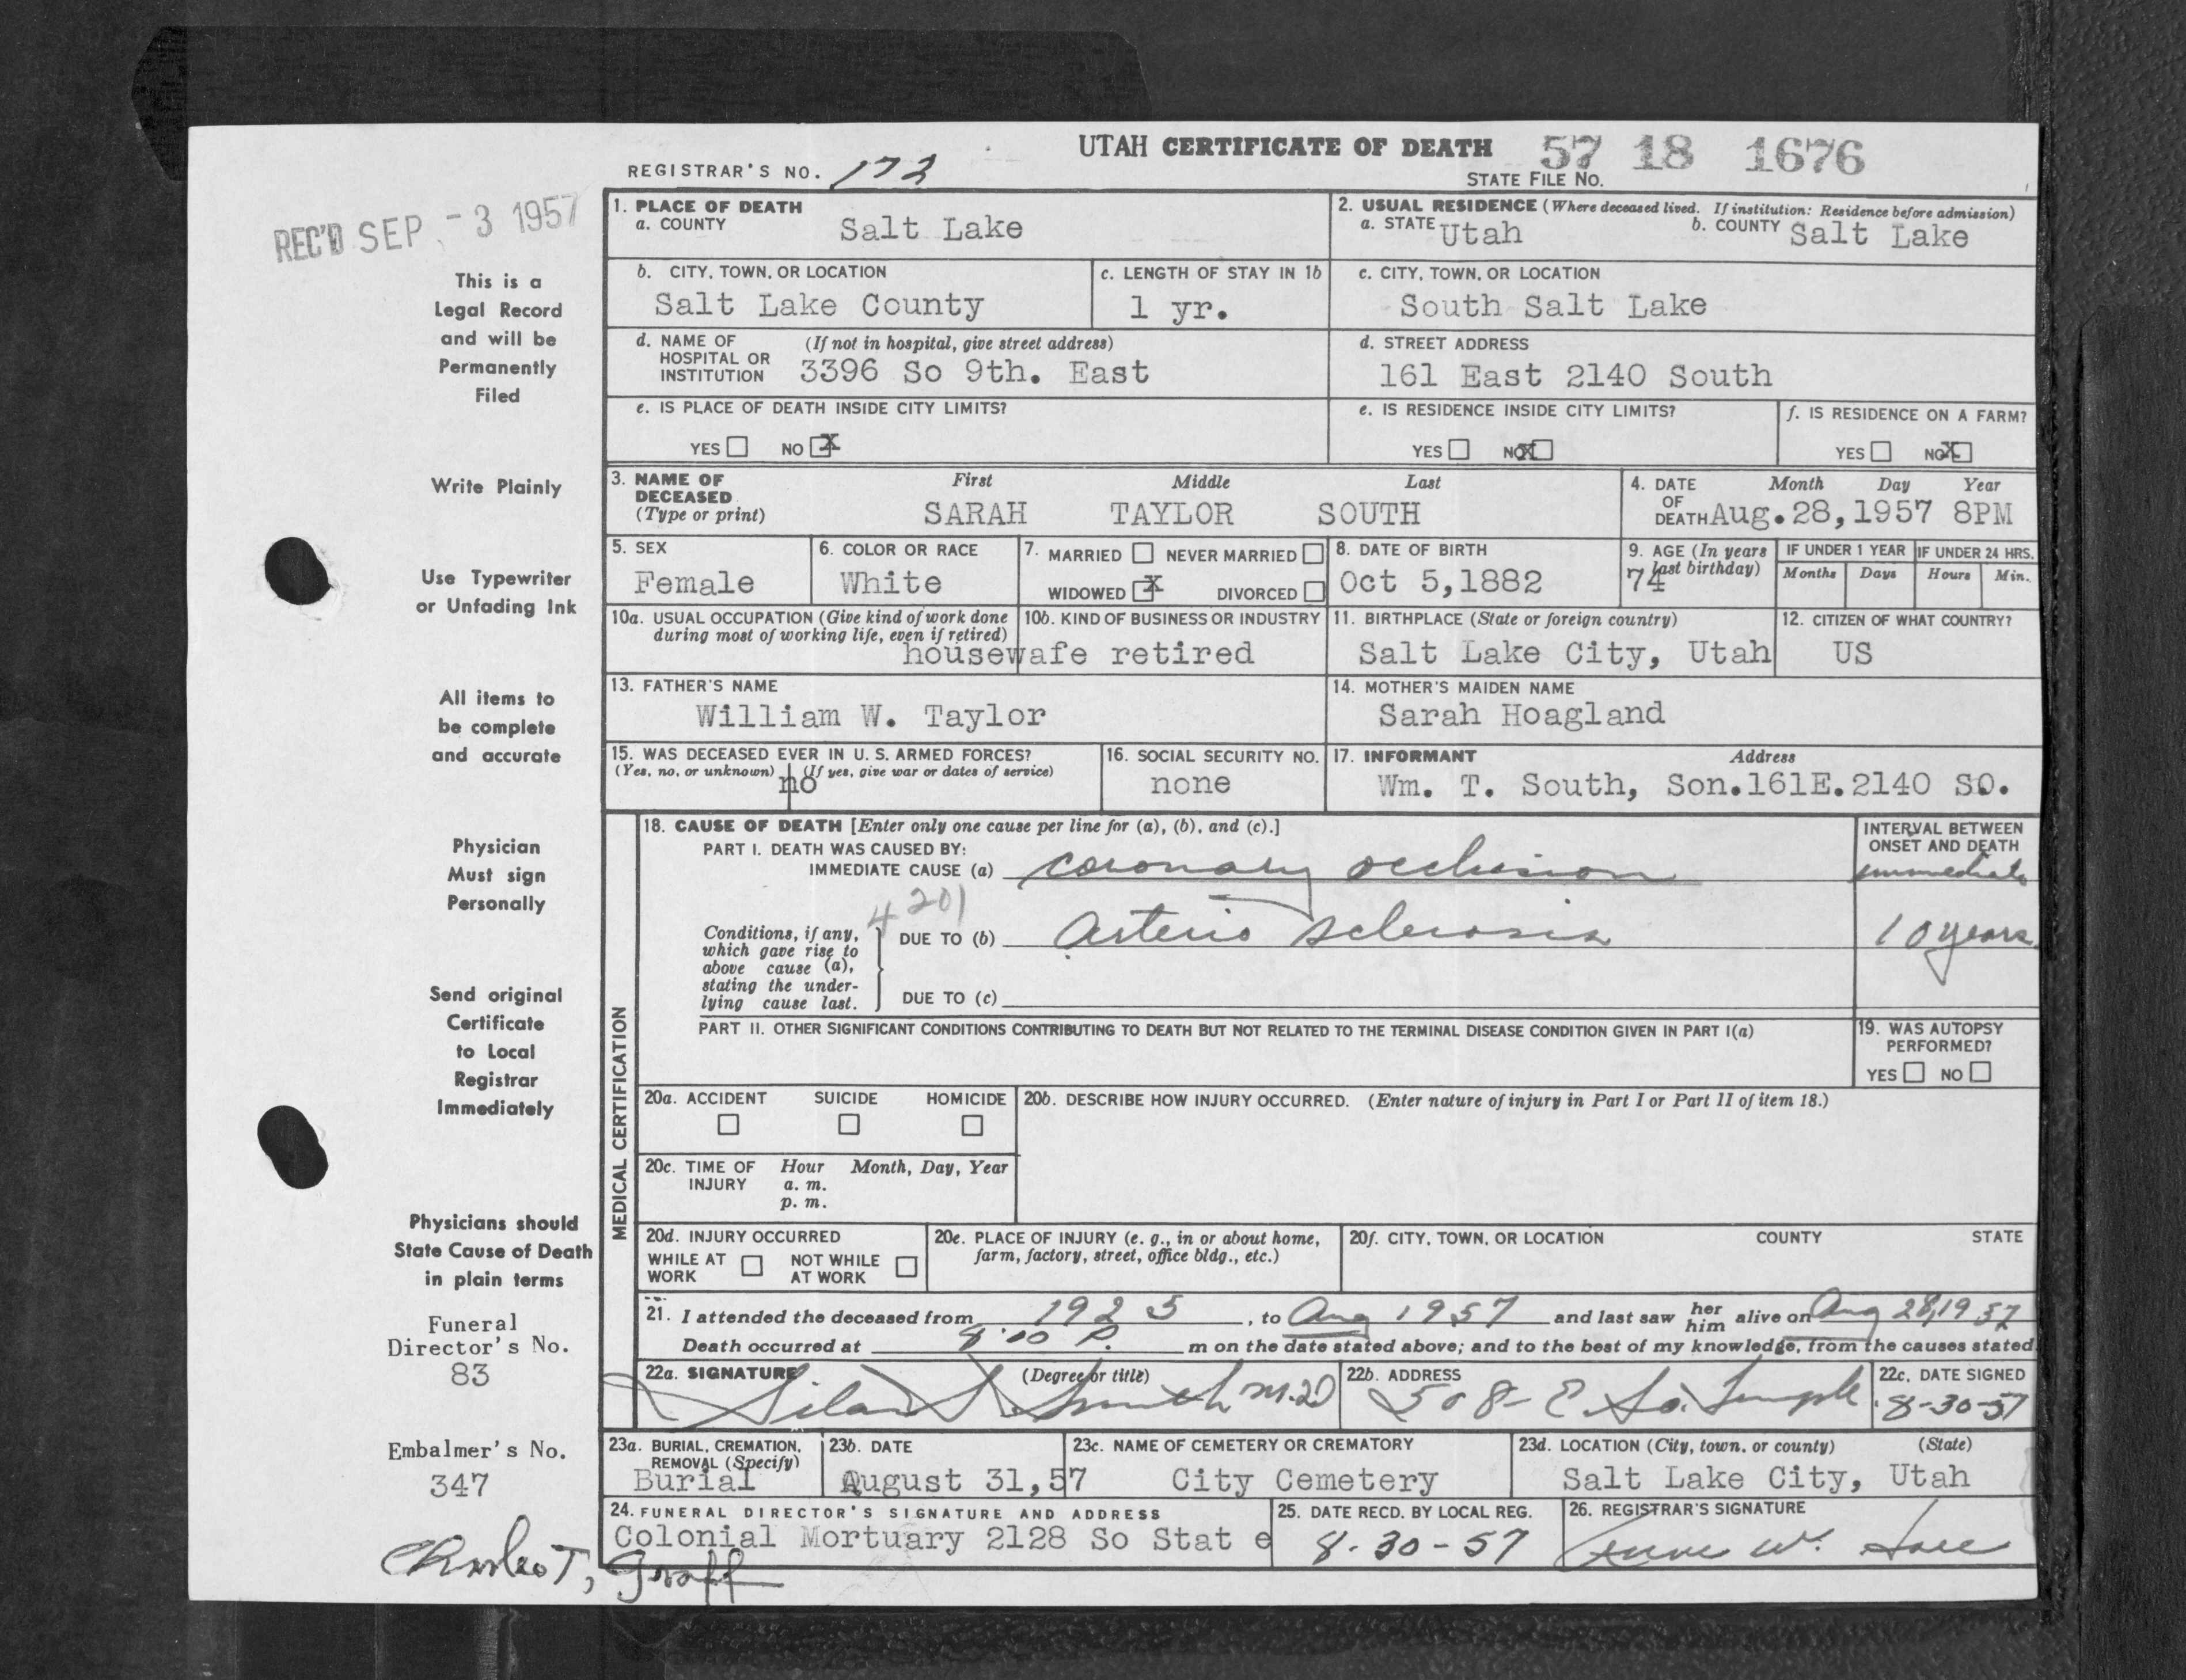 UTAH CERTIFICATE OF DEATH 57 18 1676
REGISTRAR'S NO. 172
STATE FILE NO.
REC'D SEP - 3 1957
This is a
Legal Record
and will be
Permanently
Filed
Write Plainly
Use Typewriter
or Unfading Ink
All items to
be complete
and accurate
Physician
Must sign
Personally
Send original
Certificate
to Local
Registrar
Immediately
Physicians should
State Cause of Death
in plain terms
Funeral
Director's No.
83
Embalmer's No.
347
1. PLACE OF DEATH
a. COUNTY Salt Lake
2. USUAL RESIDENCE (Where deceased lived. If institution: Residence before admission)
a. STATE Utah b. COUNTY Salt Lake
b. CITY, TOWN, OR LOCATION
Salt Lake County
c. LENGTH OF STAY IN 1b
1 yr.
c. CITY, TOWN, OR LOCATION
South Salt Lake
d. NAME OF HOSPITAL OR INSTITUTION (If not in hospital, give street address)
3396 So 9th. East
d. STREET ADDRESS
161 East 2140 South
e. IS PLACE OF DEATH INSIDE CITY LIMITS?
YES NO X
e. IS RESIDENCE INSIDE CITY LIMITS?
YES NO X
f. IS RESIDENCE ON A FARM?
YES NO X
3. NAME OF DECEASED (Type or print)
First Middle Last
SARAH TAYLOR SOUTH
4. DATE OF DEATH Month Day Year
Aug.28,1957 8PM
5. SEX
Female
6. COLOR OR RACE
White
7. MARRIED NEVER MARRIED
WIDOWED X DIVORCED
8. DATE OF BIRTH
Oct 5,1882
9. AGE (In years last birthday)
74
IF UNDER 1 YEAR
Months Days
IF UNDER 24 HRS.
Hours Min.
10a. USUAL OCCUPATION (Give kind of work done during most of working life, even if retired)
10b. KIND OF BUSINESS OR INDUSTRY
housewafe retired
11. BIRTHPLACE (State or foreign country)
Salt Lake City, Utah
12. CITIZEN OF WHAT COUNTRY?
US
13. FATHER'S NAME
William W. Taylor
14. MOTHER'S MAIDEN NAME
Sarah Hoagland
15. WAS DECEASED EVER IN U. S. ARMED FORCES?
(Yes, no, or unknown) (If yes, give war or dates of service)
no
16. SOCIAL SECURITY NO.
none
17. INFORMANT Address
Wm. T. South, Son.161E.2140 SO.
MEDICAL CERTIFICATION
18. CAUSE OF DEATH [Enter only one cause per line for (a), (b), and (c).]
PART I. DEATH WAS CAUSED BY:
IMMEDIATE CAUSE (a) coronary occlusion
INTERVAL BETWEEN
ONSET AND DEATH
immediate
4201
Conditions, if any,
which gave rise to
above cause (a),
stating the under-
lying cause last.
DUE TO (b) arterio sclerosis
10 years
DUE TO (c)
PART II. OTHER SIGNIFICANT CONDITIONS CONTRIBUTING TO DEATH BUT NOT RELATED TO THE TERMINAL DISEASE CONDITION GIVEN IN PART I(a)
19. WAS AUTOPSY
PERFORMED?
YES NO
20a. ACCIDENT SUICIDE HOMICIDE
20b. DESCRIBE HOW INJURY OCCURRED. (Enter nature of injury in Part I or Part II of item 18.)
20c. TIME OF INJURY Hour Month, Day, Year
a. m.
p. m.
20d. INJURY OCCURRED
WHILE AT WORK NOT WHILE AT WORK
20e. PLACE OF INJURY (e. g., in or about home, farm, factory, street, office bldg., etc.)
20f. CITY, TOWN, OR LOCATION COUNTY STATE
21. I attended the deceased from 1925, to Aug 1957 and last saw her him alive on Aug 28, 1957
Death occurred at 8:00 P. m on the date stated above; and to the best of my knowledge, from the causes stated
22a. SIGNATURE (Degree or title)
Silas S Smith M.D
22b. ADDRESS
508 E So. Temple
22c. DATE SIGNED
8-30-57
23a. BURIAL, CREMATION, REMOVAL (Specify)
Burial
23b. DATE
August 31,57
23c. NAME OF CEMETERY OR CREMATORY
City Cemetery
23d. LOCATION (City, town, or county) (State)
Salt Lake City, Utah
24. FUNERAL DIRECTOR'S SIGNATURE AND ADDRESS
Colonial Mortuary 2128 So Stat e
25. DATE RECD. BY LOCAL REG.
8-30-57
26. REGISTRAR'S SIGNATURE
W.
Charles T. Graff